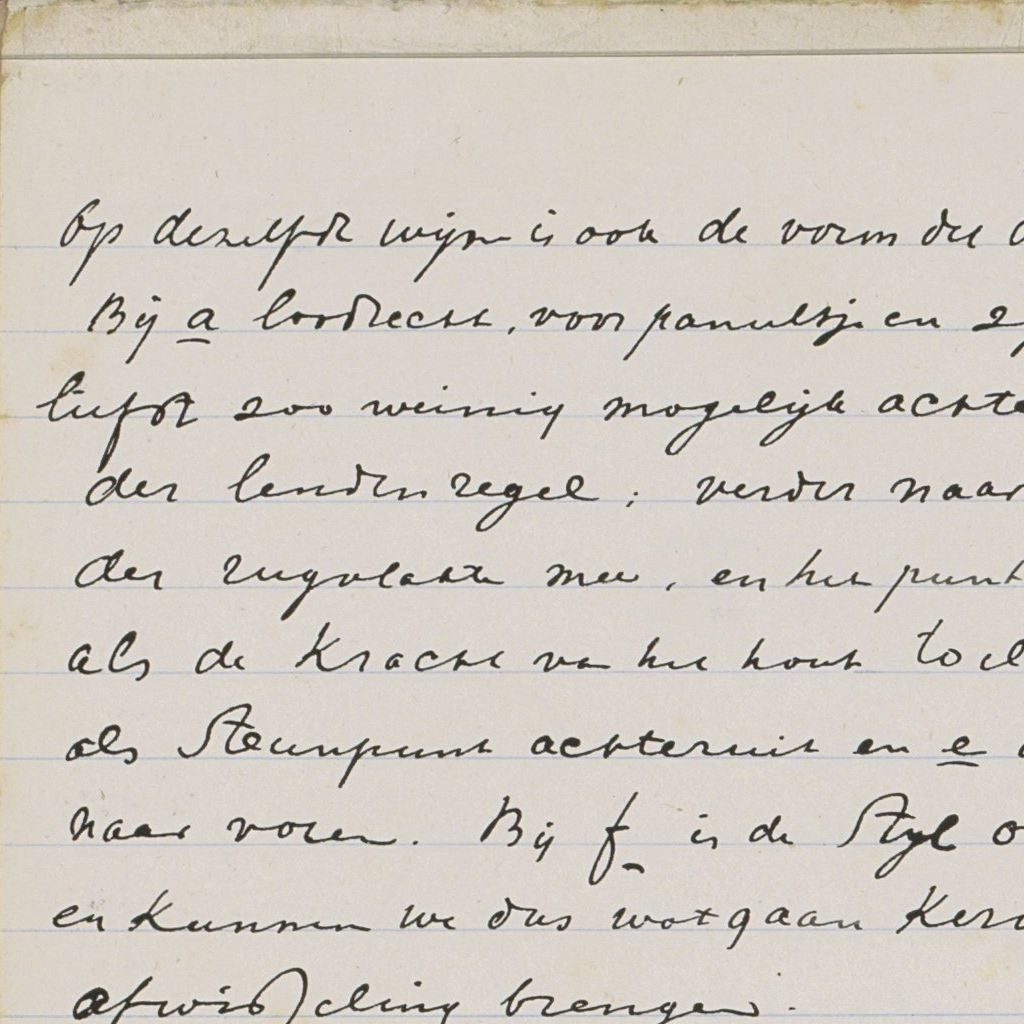 Op dezelfde wijze is ook de vorm der
Bij a loodrecht, voor paneeltje en
liefst zoo weinig mogelijk achte
der lendenregel; verder naar
der rugvlakte mee, en het punt
als de Kracht van het hout toel
als Steunpunt achteruit en e
naar voren. Bij f is de Styl o
en Kunnen we dus wat gaan Kerv
afwisseling brengen.